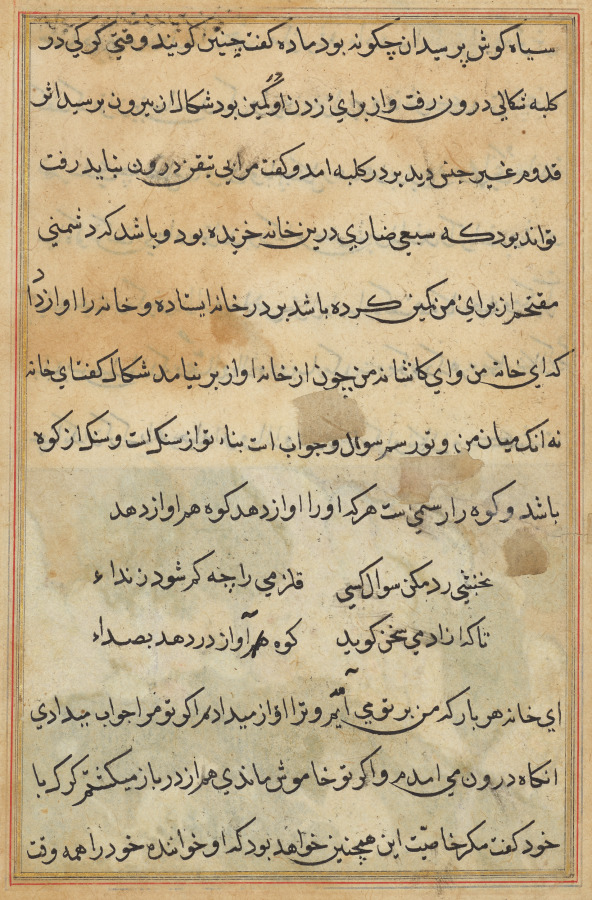 سیاه کوش پرسیدان چکونه بود ماده کفت چنین کویند وقتی کرکی در
کلبه شکالی درون رفت و از برای زدن او کمین بود شکال از بیرون برسید اثر
قدوم غیر جنس دید بر در کلبه امد و کفت مرا بی تیقن درون نباید رفت
تواند بود که سبعی ضاری درین خانه خزیده بود و باشد که دشمنی
مقتحم از برای من کمین کرده باشد بر در خانه ایستاده و خانه را اواز داد
که ای خانه من و ای کاشانه من چون از خانه اواز بر نیامد شکال کفت ای خانه
نه انک میان من و تو رسم سوال و جواب است بناء تو از سنک است و سنک از کوه
باشد و کوه را رسمی ست هر که او را اواز دهد کوه هم اواز دهد
نخشبی رد مکن سوال کسی قلزمی را چه کم شود ز نداء
تا که ازادی سخن کوید کوه هم آواز در دهد بصداء
ای خانه هر بار که من بر تو می آیم و ترا اواز میدادم اکر تو مرا جواب میدادی
انکاه درون می امدم و اکر تو خاموش ماندی هم از در باز میکشتم کرک با
خود کفت مکر خاصیّت این همچنین خواهد بود که او خوانندهٔ خود را همه وقت